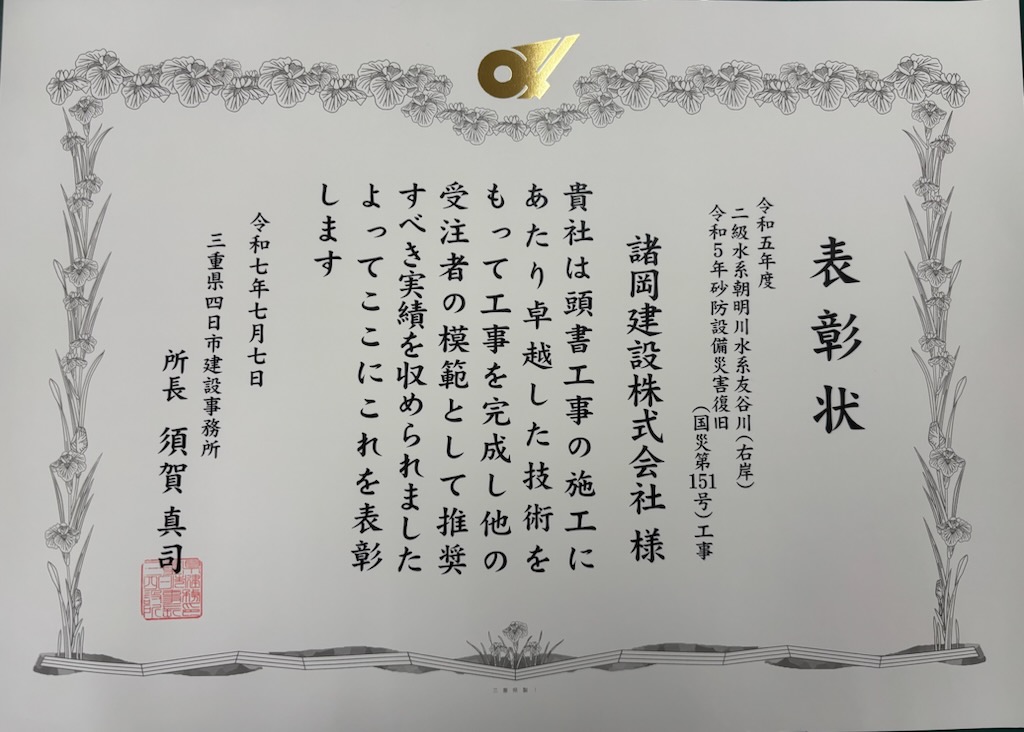 表彰状
令和五年度
二級水系朝明川水系友谷川(右岸)
令和5年砂防設備災害復旧
(国災第151号)工事
諸岡建設株式会社 様
貴社は頭書工事の施工に
あたり卓越した技術を
もって工事を完成し他の
受注者の模範として推奨
すべき実績を収められました
よってここにこれを表彰
します
令和七年七月七日
三重県四日市建設事務所
所長 須賀 真司